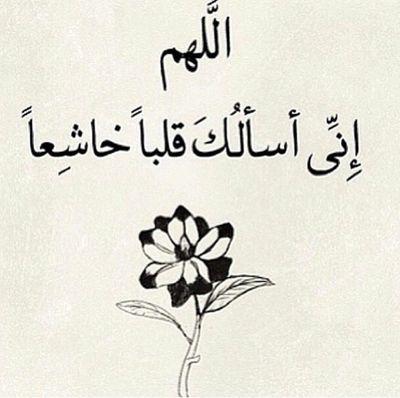 اللَّهم
إِنِّى أسألُكَ قلباً خاشِعاً